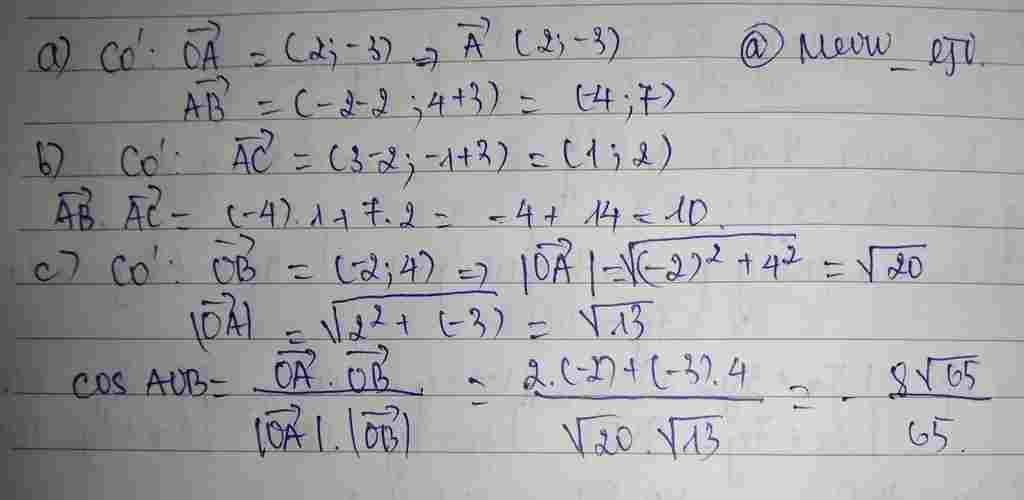 a) Có: $\overrightarrow{OA}$ = (2; -3) => $\overrightarrow{A}$ (2; -3) @ Meow_
$\overrightarrow{AB}$ = (-2-2; 4+3) = (-4; 7)
b) Có: $\overrightarrow{AC}$ = (3-2; -1+3) = (1; 2)
$\overrightarrow{AB}$. $\overrightarrow{AC}$ = (-4).1 + 7.2 = -4 + 14 = 10.
c) Có: $\overrightarrow{OB}$ = (-2; 4) => |$\overrightarrow{OA}$| = $\sqrt{(-2)^2 + 4^2}$ = $\sqrt{20}$
|$\overrightarrow{OA}$| = $\sqrt{2^2 + (-3)}$ = $\sqrt{13}$
cos AOB = $\frac{\overrightarrow{OA} . \overrightarrow{OB}}{|\overrightarrow{OA}| . |\overrightarrow{OB}|}$ = $\frac{2.(-2) + (-3).4}{\sqrt{20} . \sqrt{13}}$ = - $\frac{8\sqrt{65}}{65}$.